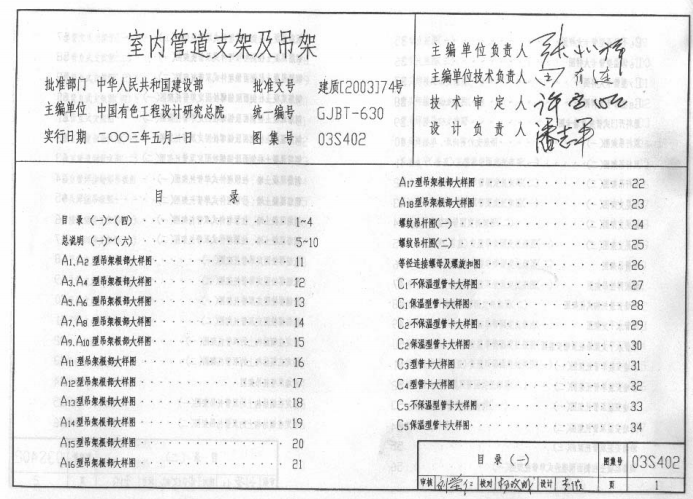 室内管道支架及吊架
批准部门 中华人民共和国建设部 批准文号 建质[2003]74号
主编单位 中国有色工程设计研究总院 统一编号 GJBT-630
实行日期 二〇〇三年五月一日 图集号 03S402
主编单位负责人
主编单位技术负责人
技术审定人
设计负责人
目 录
目 录 (一)~(四) 1~4
总说明 (一)~(六) 5~10
A1,A2 型吊架根部大样图 11
A3,A4 型吊架根部大样图 12
A5,A6 型吊架根部大样图 13
A7,A8 型吊架根部大样图 14
A9,A10 型吊架根部大样图 15
A11 型吊架根部大样图 16
A12型吊架根部大样图 17
A13型吊架根部大样图 18
A14型吊架根部大样图 19
A15型吊架根部大样图 20
A16型吊架根部大样图 21
A17型吊架根部大样图 22
A18型吊架根部大样图 23
螺纹吊杆图(一) 24
螺纹吊杆图(二) 25
等径连接螺母及螺旋扣图 26
C1不保温型管卡大样图 27
C1保温型管卡大样图 28
C2不保温型管卡大样图 29
C2保温型管卡大样图 30
C3型管卡大样图 31
C4型管卡大样图 32
C5不保温型管卡大样图 33
C5保温型管卡大样图 34
目 录 (一) 图集号 03S402
审核 校对 设计 页 1